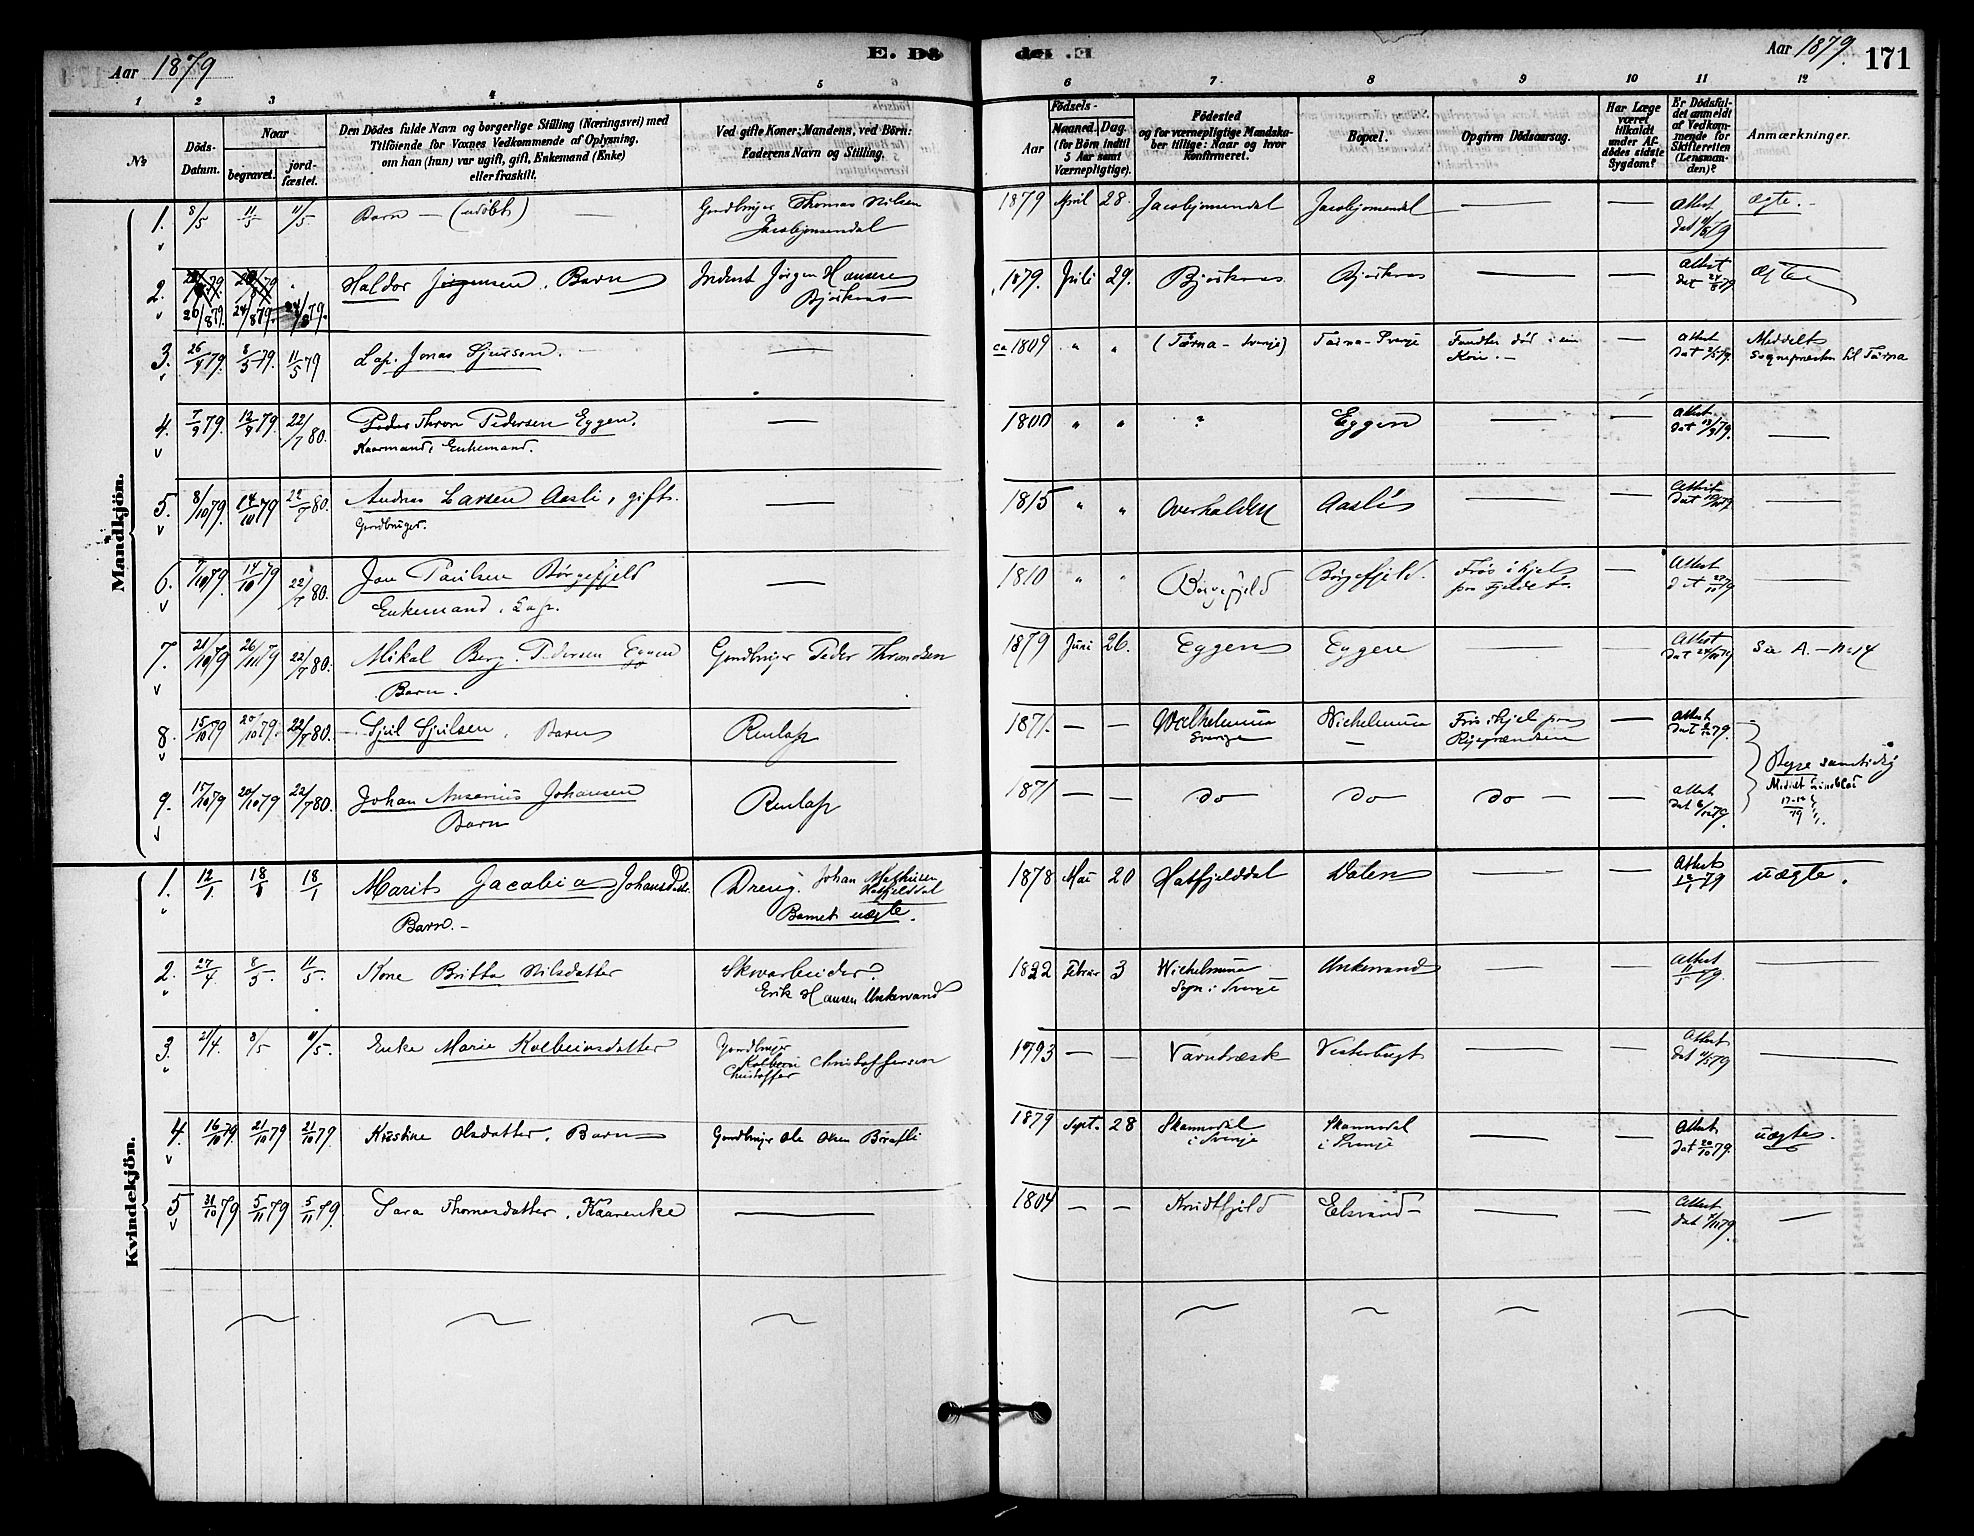 Aar 1879
E. Dö
de. E.
Aar 1879.
171
1 2 3 4 5 6 7. 8 9 10 11 12
No
Döds-Datum.
Naar
begravet.
jord-fæstet.
Den Dödes fulde Navn og borgerlige Stilling (Næringsvei) med
Tilföiende for Voxnes Vedkommende af Oplysning,
om han (hun) var ugift, gift, Enkemand (Enke)
eller fraskilt.
Ved gifte Koner: Mandens, ved Börn:
Faderens Navn og Stilling.
Födsels-
Aar
Maaned. Dag.
(for Börn indtil
5 Aar samt
Værnepligtige).
Födested
og for værnepligtige Mandska-
ber tillige: Naar og hvor
Konfirmeret.
Bopæl.
Opgiven Dödsaarsag.
Har Læge
været
tilkaldt
under Af-
dödes sidste
Sygdom?
Er Dödsfal-
det anmeldt
af Vedkom-
mende for
Skifteretten
(Lensman-
den)?
Anmærkninger.
Mandkjön.
1. 8/5 11/5 11/5 Barn — (udöbt) — Gaardbruger Thomas Nilsen 1879 April 28. Jacobjonsendal Jacobjonsendal — — Attest ægte. -
Jacobjonsendal dat 11/5 79
2. Haldor Jörgensen, Barn Inderst Jörgen Hansen 1879. Juli 29. Attest ægte
26/8 79. 24/8 79. 24/8 79. dat 24/8 79
3. 26/4 79. 8/5 79. 11/5 79 Lap. Jonas Sjursen. — — ca 1809 " " (Tärna - Sverje) Tärna - Sverje Fundten död i sin — Attest Meddelt
dat 2/5 79. Sognepræsten til Tärna
4. 7/9 79. 12/9 79. 22/7 80. Peder Thron Pedersen Eggen. — 1800 " " ? Eggen — — Attest —
Kaarmand, Enkemand.
5. 8/10 79. 14/10 79 22/7 80. Andreas Larsen Aasli, gift. — 1815 " " Overhalden Aasli — — Attest —
Gaardbruger.
6. 7/10 79. 14/10 79 22/7 80. Jon Paulsen Börgefjeld — 1810 " " Börgefjeld Börgefjeld. Frös ihjel — Attest —
Enkemand. Lap. paa Fjeldet.
7. 21/10 79 26/10 79 22/7 80. Mikal Berg. Pedersen Eggen Gaardbruger Peder Throndsen 1879 Juni 26. Eggen Eggen — — Attest See A. - No 14
Barn.
8. 15/10 79 20/10 79. 22/7 80. Sjul Sjulsen, Barn Renlap 1871. — — Wilhelmina Wilhelmina Frös ihjel paa — Attest
Sverige — Rigsgrændsen
9. 17/10 79 20/10 79 22/7 80. Johan Anserius Johansen Renlap 1871 — — Do Do Do — — Attest Begge samtidig
Barn dat 6/12 79.
Kvindekjön.
1. 12/1. 18/1 18/1 Marit Jacobia Johansdatter Dreng. Johan Mathisen 1878 Mai 20 Hatfjelddal Dalen — — Attest uægte.
Barn. - Hatfjelddal
Barnet uægte.
2. 27/4. 8/5. 11/5. Kone Britta Nilsdatter Skovarbeider. 1822 Februar 3 Wilhelmina Unkervand — — Attest —
Erik Hansen Unkervand Sogn i Sverje 11/5 79.
3. 21/4. 8/5 11/5. Enke Marie Kolbeinsdatter Gaardbruger 1793 — — Varntræsk Vesterbugt — — Attest —
Christoffersen dat 11/5 79
Christoffer
4. 16/10 79. 21/10 79 21/10 79. Kristine Olsdatter. Barn Gaardbruger Ole Olsen 1879 Sept. 28 Skansedal Skansedal — — Attest uægte.
i Sverje i Sverje dat 20/10 79.
5 31/10 79 5/11 79 5/11 79. Sara Thomasdatter. Kaarenke — 1804 — — Elsvand — — — Attest —